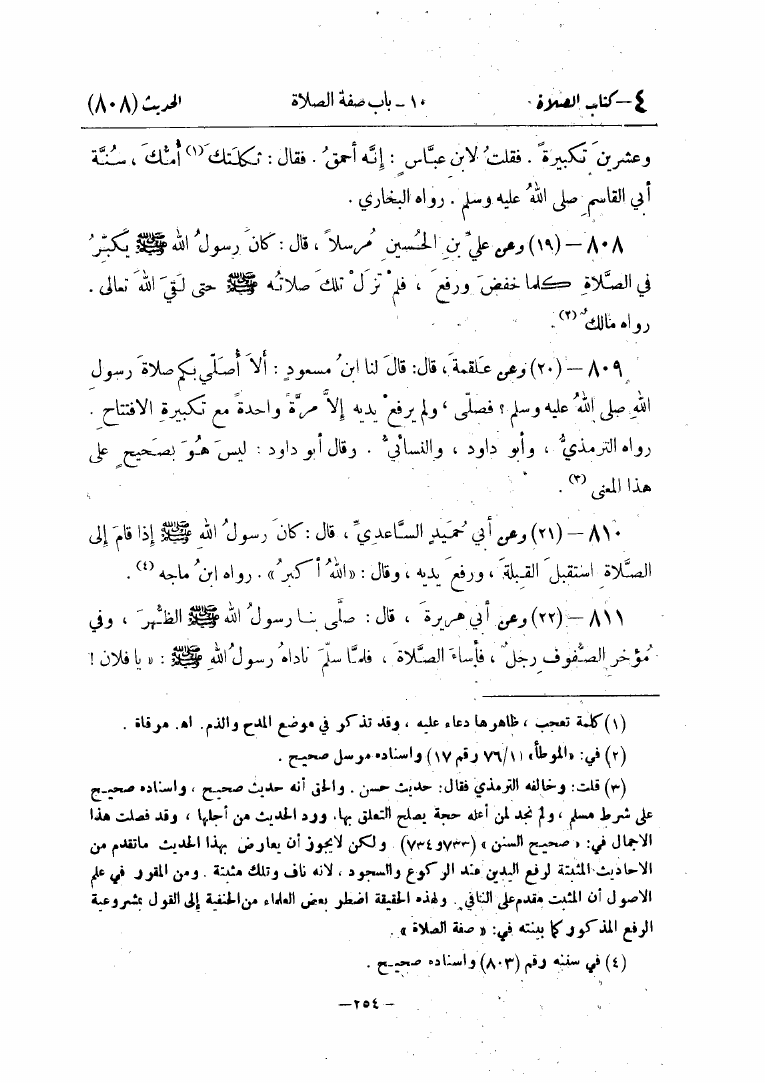 ٤ – كتاب الصلاة ١٠ – باب صفة الصلاة الحديث (٨٠٨)
وعشرينَ تكبيرةً . فقلتُ لابنِ عبَّاسٍ : إنَّه أحمقُ . فقال : ثكلَتكَ (١) أُمُّكَ ، سُنَّة
أبي القاسمِ صلى اللهُ عليه وسلم . رواه البخاري .
٨٠٨ – (١٩) وعن عليِّ بنِ الحُسينِ مُرسلاً ، قال : كانَ رسولُ الله ﷺ يُكبِّرُ
في الصَّلاةِ كلما خفضَ ورفعَ ، فلمْ تزلْ تلكَ صلاتُه ﷺ حتى لقيَ اللهَ تعالى .
رواه مالكٌ (٢) .
٨٠٩ – (٢٠) وعن علقمةَ ، قال : قالَ لنا ابنُ مسعودٍ : ألاَ أُصَلّي بكم صلاةَ رسولِ
اللهِ صلى اللهُ عليه وسلم ؟ فصلّى ، ولم يرفعْ يديه إلاَّ مرَّةً واحدةً مع تكبيرةِ الافتتاحِ .
رواه الترمذيُّ ، وأبو داود ، والنسائيُّ . وقال أبو داود : ليسَ هُوَ بصَحيحٍ على
هذا المعنى (٣) .
٨١٠ – (٢١) وعن أبي حُميدٍ السَّاعديِّ ، قال : كانَ رسولُ اللهِ ﷺ إذا قامَ إلى
الصَّلاةِ استقبلَ القِبلةَ ، ورفعَ يديه ، وقال : «اللهُ أكبرُ» . رواه ابنُ ماجه (٤) .
٨١١ – (٢٢) وعن أبي هريرةَ ، قال : صلَّى بنا رسولُ الله ﷺ الظُّهرَ ، وفي
مُؤخرِ الصُّفوفِ رجلٌ ، فأساءَ الصَّلاةَ ، فلمَّا سلَّمَ ناداهُ رسولُ اللهِ ﷺ : « يا فلان !
(١) كلمة تعجب ، ظاهرها دعاء عليه ، وقد تذكر في موضع المدح والذم . اهـ . مرقاة .
(٢) في : «الموطأ» (٧٦/١ رقم ١٧) واسناده مرسل صحيح .
(٣) قلت : وخالفه الترمذي فقال : حديث حسن . والحق أنه حديث صحيح ، واسناده صحيح
على شرط مسلم ، ولم نجد لمن أعله حجة يصلح التعلق بها . ورد الحديث من أجلها ، وقد فصلت هذا
الاجمال في : « صحيح السنن » (٧٣٣و٧٣٤) ولكن لايجوز أن يعارض بهذا الحديث ماتقدم من
الاحاديث المثبتة لرفع اليدين عند الركوع والسجود ، لانه ناف وتلك مثبتة . ومن المقرر في علم
الاصول أن المثبت مقدم على النافي . ولهذه الحقيقة اضطر بعض العلماء من الحنفية إلى القول بمشروعية
الرفع المذكور كما بينته في : « صفة الصلاة » .
(٤) في سننه رقم (٨٠٣) واسناده صحيح .
– ٢٥٤ –